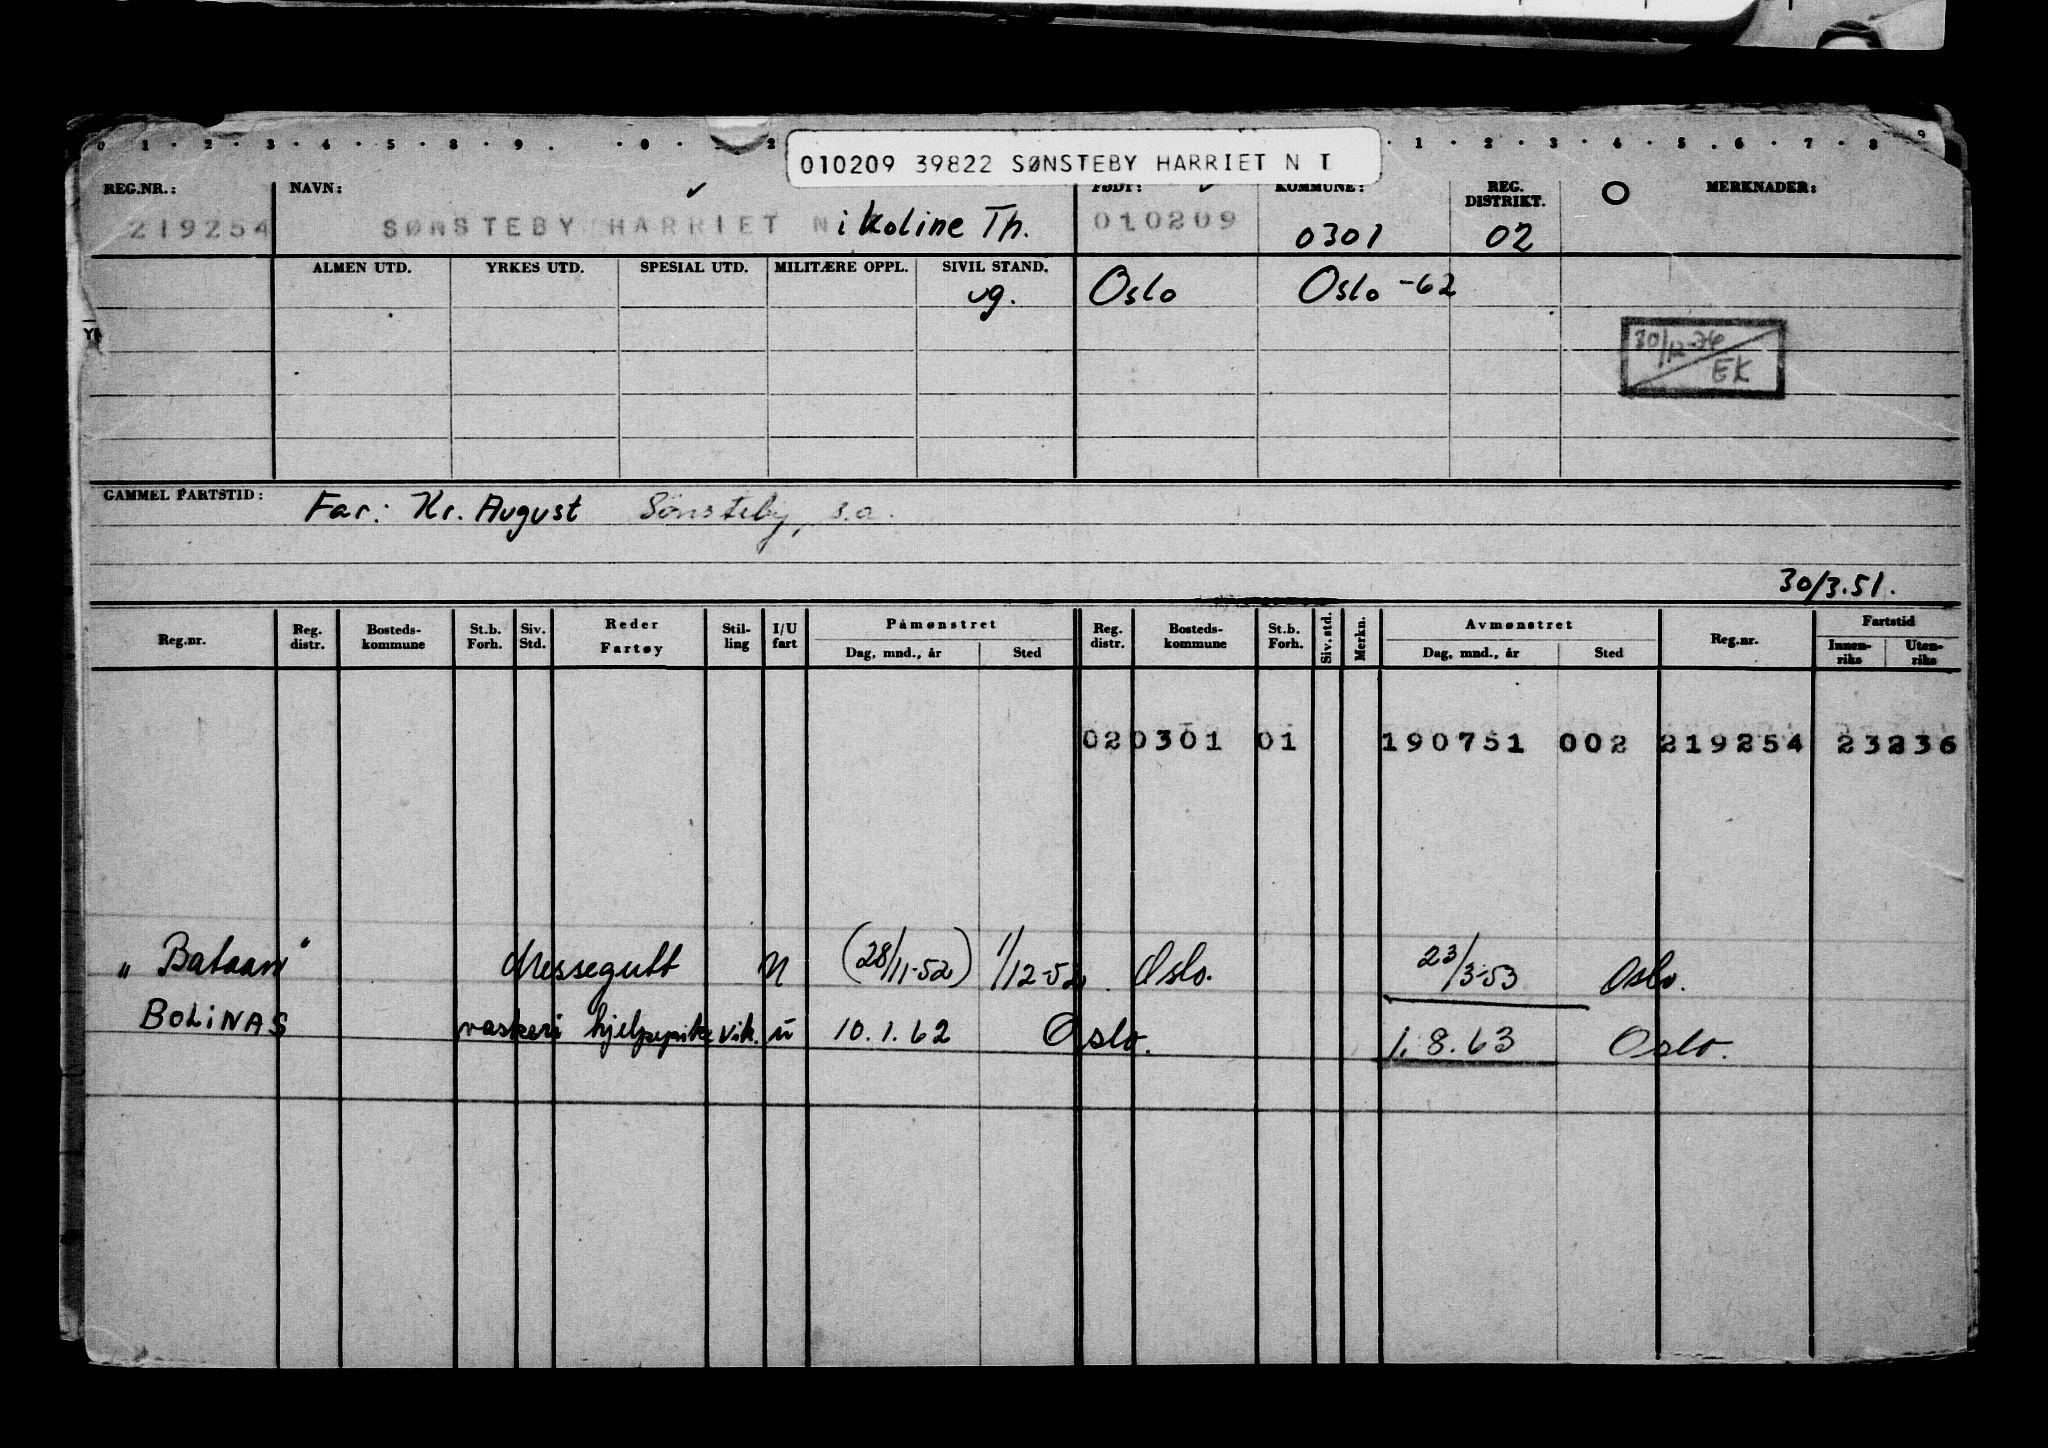 0 1 2 3 4 5 8 9 0 1 2 1 2 3 4 5 6 7 8 9
010209 39822 SØNSTEBY HARRIET N T
REG.NR.: NAVN: FØDT: KOMMUNE: REG. DISTRIKT. O MERKNADER:
219254 SØNSTEBY HARRIET Nikoline Th. 010209 0301 02
ALMEN UTD. YRKES UTD. SPESIAL UTD. MILITÆRE OPPL. SIVIL STAND.
ug. Oslo Oslo -62
30/12-76
EK
GAMMEL FARTSTID: Far: Kr. August Sønsteby, s.a.
30/3.51.
Reg.nr. Reg. distr. Bosteds-kommune St.b. Forh. Siv. Std. Reder Fartøy Stil-ling I/U fart Påmønstret Dag, mnd., år Sted Reg. distr. Bosteds-kommune St.b. Forh. Siv. std. Merkn. Avmønstret Dag, mnd., år Sted Reg.nr. Fartstid Innen-riks Uten-riks
02 0301 01 190751 002 219254 23236
„Bataan" Messegutt U (28/11-52) 1/12-52 Oslo. 23/3-53 Oslo.
BOLINAS vaskeri hjelpepike vik. u 10.1.62 Oslo. 1.8.63 Oslo.